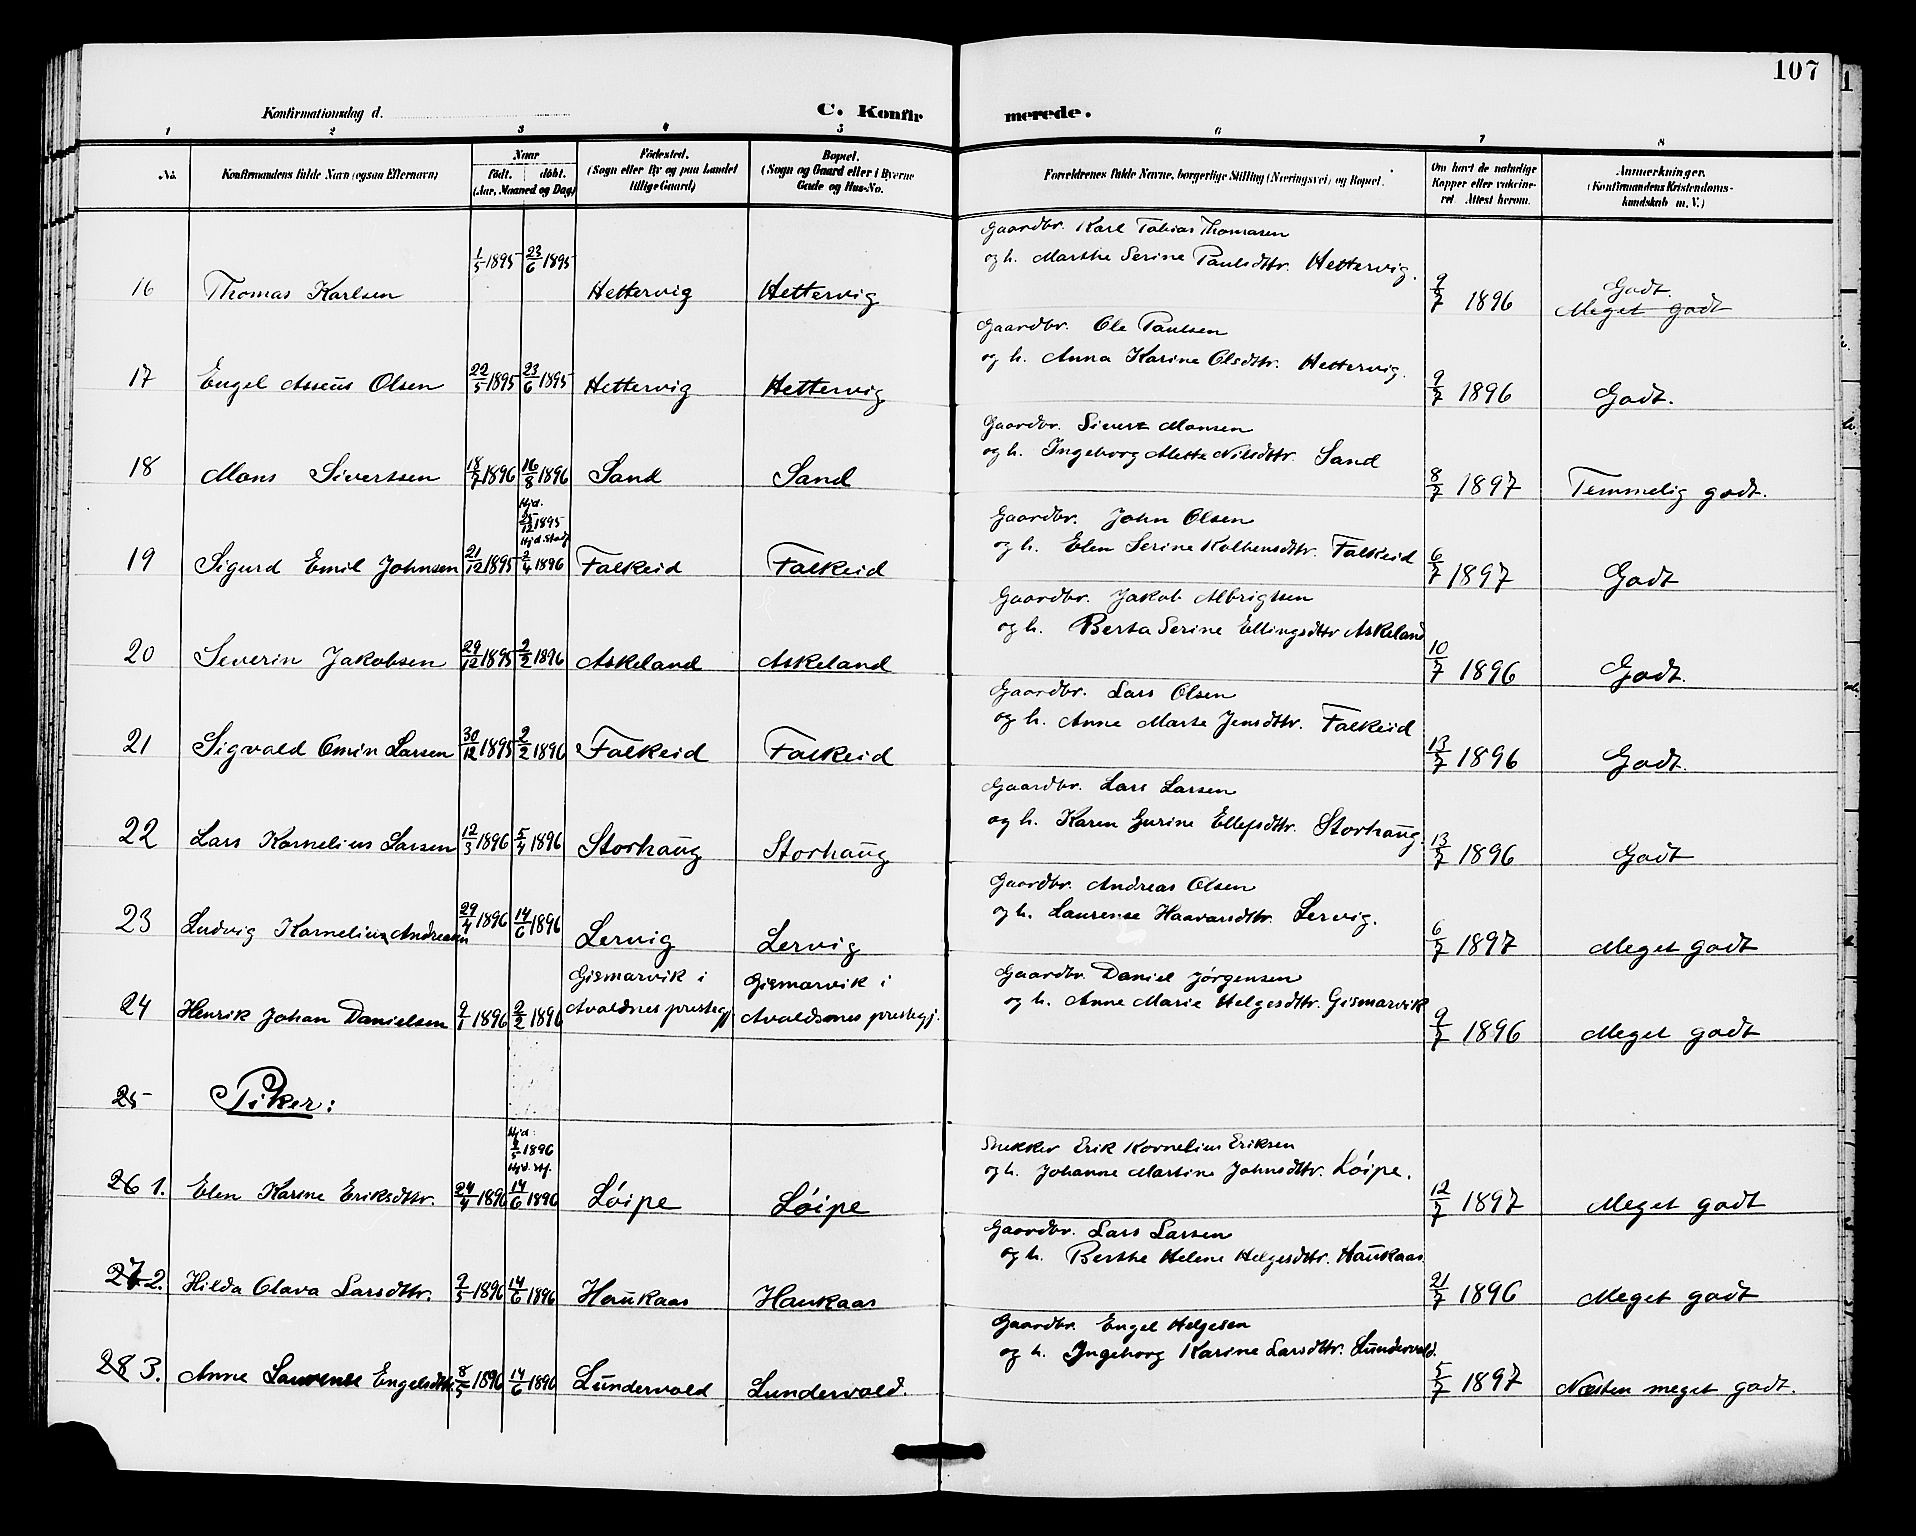 107
Konfirmationsdag d.
C. Konfir merede.
1 2 3 4 5 6 7 8
No.
Konfirmandens fulde Navn (ogsaa Efternavn)
Naar
födt. döbt.
(Aar, Maaned og Dag)
Födested.
(Sogn eller By og paa Landet
tillige Gaard)
Bopæl.
(Sogn og Gaard eller i Byerne
Gade og Hus-No.
Forældrenes fulde Navne, borgerlige Stilling (Næringsvei) og Bopæl.
Om havt de naturlige
Kopper eller vakcine-
ret Attest herom.
Anmærkninger.
(Konfirmandens Kristendoms-
kundskab m. V.)
Gaardbr. Karl Tobias Thomasen
og h. Marthe Serine Paulsdttr. Hettervig.
16 Thomas Karlsen 1/5 1895 23/6 1895 Hettervig Hettervig 9/7 1896 Godt.
Meget godt
Gaardbr. Ole Paulsen
og h. Anna Karine Olsdttr. Hettervig.
17 Engel Asseus Olsen 22/5 1895 23/6 1895 Hettervig Hettervig 9/7 1896 Godt.
Gaardbr. Sivert Monsen
og h. Ingeborg Mette Nilsdttr. Sand
18 Mons Sivertsen 18/7 1896 16/8 1896 Sand Sand 8/7 1897 Temmelig godt.
Hjd.
25/12 1895
Hjd. Stadf
Gaardbr. John Olsen
og h. Elen Serine Kolbensdttr. Falkeid
19 Sigurd Emil Johnsen 21/12 1895 2/4 1896 Falkeid Falkeid 6/7 1897 Godt
Gaardbr. Jakob Albrigtsen
og h. Berta Serine Ellingsdttr Askeland
20 Severin Jakobsen 29/12 1895 2/2 1896 Askeland Askeland 10/7 1896 Godt.
Gaardbr. Lars Olsen
og h. Anne Marte Jensdttr. Falkeid
21 Sigvald Omin Larsen 30/12 1895 2/2 1896 Falkeid Falkeid 13/7 1896 Godt.
Gaardbr. Lars Larsen
og h. Karen Gurine Ellefsdttr. Storhaug.
22 Lars Kornelius Larsen 12/3 1896 5/4 1896 Storhaug Storhaug 13/7 1896 Godt
Gaardbr. Andreas Olsen
og h. Laurense Haavarsdttr. Lervig.
23 Ludvig Kornelius Andreasen 29/4 1896 14/6 1896 Lervig Lervig 6/7 1897 Meget godt
Gismarvik i Gismarvik i
Gaardbr. Daniel Jørgensen
og h. Anne Marie Helgesdttr. Gismarvik
24 Henrik Johan Danielsen 9/1 1896 9/2 1896 Avaldnes prestegj Avaldsnes prestegj. 9/7 1896 Meget godt
25 Piker:
Hjd:
9/5 1896
Hjd. stf.
Snekker Erik Kornelius Eriksen
og h. Johanne Martine Johnsdttr. Løipe.
26 1. Elen Karine Eriksdttr. 24/4 1896 14/6 1896 Løipe Løipe 12/7 1897 Meget godt
Gaardbr. Lars Larsen
og h. Berthe Helene Helgesdttr. Haukaas
27 2. Hilda Olava Larsdttr. 9/5 1896 14/6 1896 Haukaas Haukaas 21/7 1896 Meget godt
Gaardbr. Engel Helgesen
og h. Ingeborg Karine Larsdttr. Lundervold.
28 3. Anne Laurense Engelsdttr. 8/5 1896 14/6 1896 Lundervold Lundervold. 5/7 1897 Næsten meget godt.